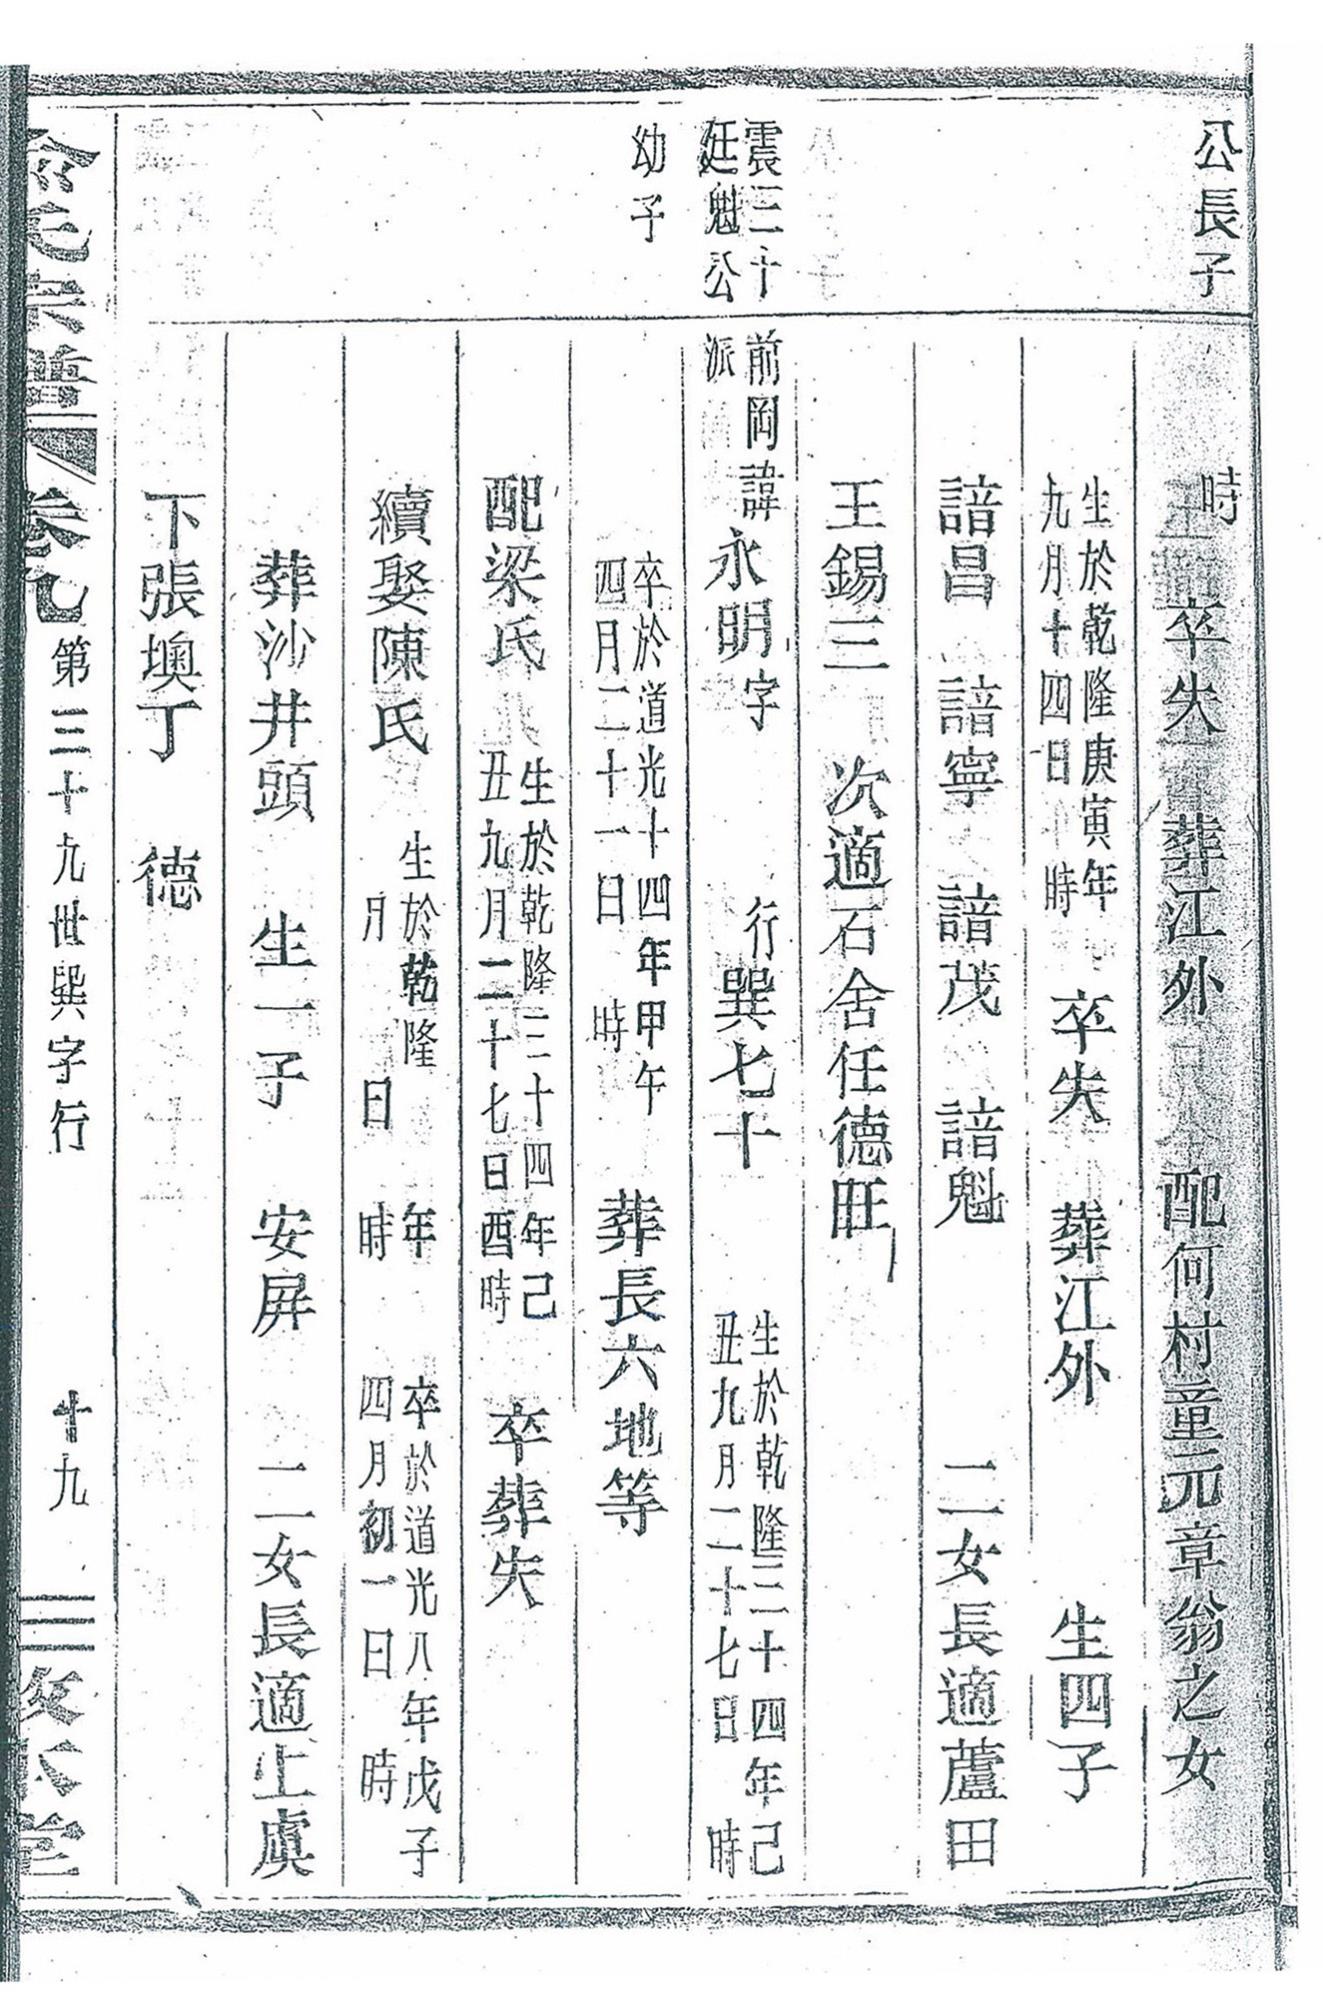 公長子
時
卒失 葬江外 配何村童元章翁之女
生於乾隆庚寅年
九月十四日 時 卒失 葬江外 生四子
諳昌 諳寧 諳茂 諳魁 二女長適蘆田
王錫三 次適石舍任德旺
震三十
廷魁公
幼子
前岡諱
派
永明字 行巽七十
生於乾隆三十四年己
丑九月二十七日 時
卒於道光十四年甲午
四月二十一日 時 葬長六地等
配梁氏
生於乾隆三十四年己
丑九月二十七日酉時 卒葬失
續娶陳氏
生於乾隆 年
月 日 時
卒於道光八年戊子
四月初一日 時
葬沙井頭 生一子 安屏 二女長適上虞
下張墺丁 德
俞氏宗譜 卷九 第三十九世巽字行 十九 敦本堂